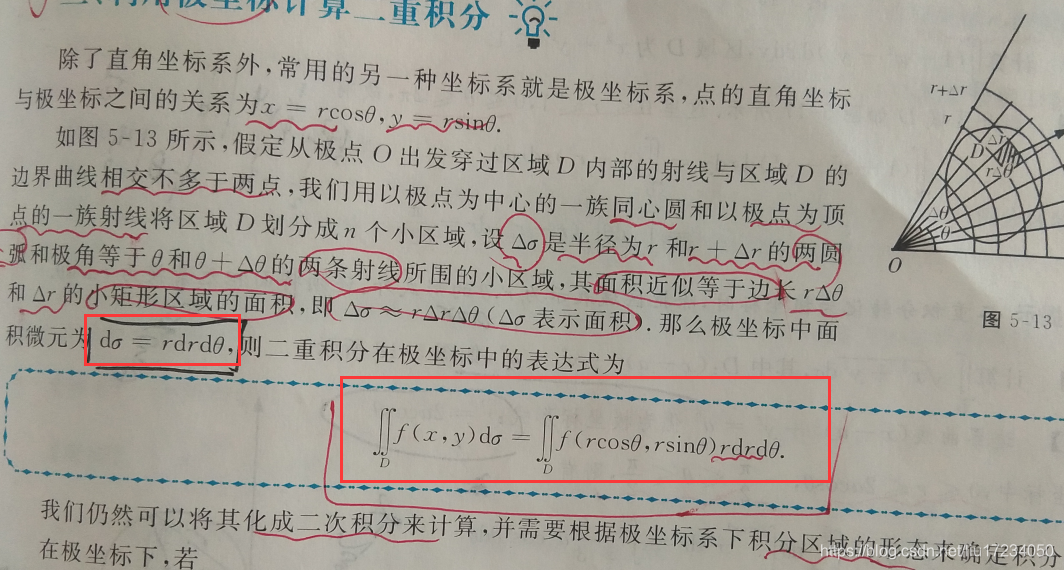 利用极坐标计算二重积分
除了直角坐标系外,常用的另一种坐标系就是极坐标系,点的直角坐标
与极坐标之间的关系为x = rcosθ,y = rsinθ.
如图 5-13 所示,假定从极点 O 出发穿过区域 D 内部的射线与区域 D 的
边界曲线相交不多于两点,我们用以极点为中心的一族同心圆和以极点为顶
点的一族射线将区域 D 划分成 n 个小区域,设 Δσ 是半径为 r 和 r + Δr 的两圆
弧和极角等于 θ 和 θ + Δθ 的两条射线所围的小区域,其面积近似等于边长 rΔθ
和 Δr 的小矩形区域的面积,即 Δσ ≈ rΔrΔθ (Δσ 表示面积). 那么极坐标中面
积微元为 dσ = rdrdθ,则二重积分在极坐标中的表达式为
∬f(x,y)dσ = ∬f(rcosθ,rsinθ)rdrdθ.
D D
我们仍然可以将其化成二次积分来计算,并需要根据极坐标系下积分区域的形态来确定积分
在极坐标下,若
r+Δr
r
D
Δr
rΔθ
Δθ
θ
O
图 5-13